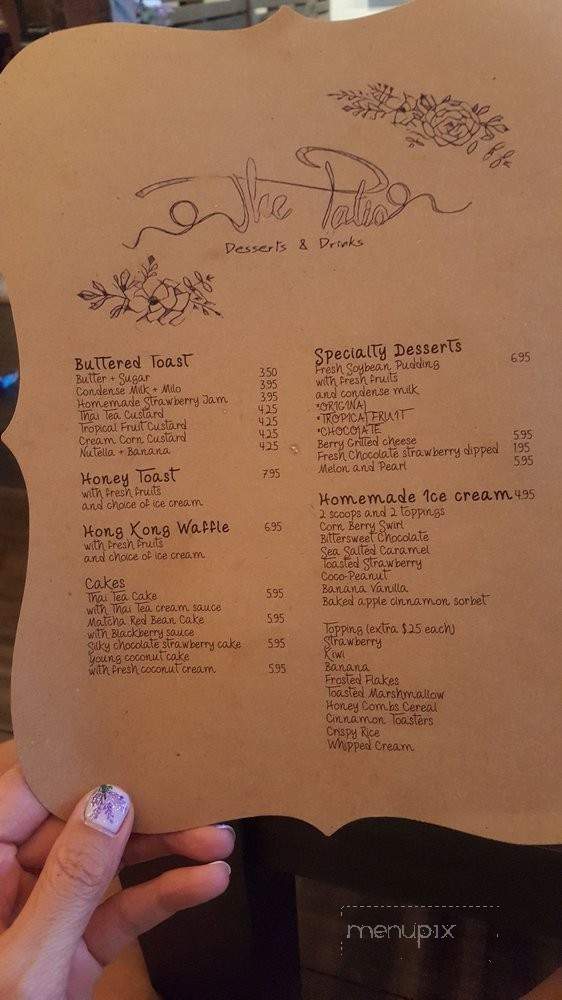 The Patio
Desserts & Drinks
Buttered Toast
Butter + Sugar 3.50
Condense Milk + Milo 3.95
Homemade Strawberry Jam 3.95
Thai Tea Custard 4.25
Tropical Fruit Custard 4.25
Cream Corn Custard 4.25
Nutella + Banana 4.25
Honey Toast 7.95
with fresh fruits
and choice of ice cream
Hong Kong Waffle 6.95
with fresh fruits
and choice of ice cream
Cakes
Thai Tea Cake 5.95
with Thai Tea cream sauce
Matcha Red Bean Cake 5.95
with Blackberry sauce
Silky chocolate strawberry cake 5.95
Young coconut cake
with fresh coconut cream 5.95
Specialty Desserts
Fresh Soybean Pudding 6.95
with fresh fruits
and condense milk
*ORIGINAL
*TROPICAL FRUIT
*CHOCOLATE
Berry Grilled cheese 5.95
Fresh Chocolate strawberry dipped 1.95
Melon and Pearl 5.95
Homemade Ice cream 4.95
2 scoops and 2 toppings
Corn Berry Swirl
Bittersweet Chocolate
Sea Salted Caramel
Toasted Strawberry
Coco-Peanut
Banana Vanilla
Baked apple cinnamon sorbet
Topping (extra $.25 each)
Strawberry
Kiwi
Banana
Frosted Flakes
Toasted Marshmallow
Honey Combs Cereal
Cinnamon Toasters
Crispy Rice
Whipped Cream
menupix